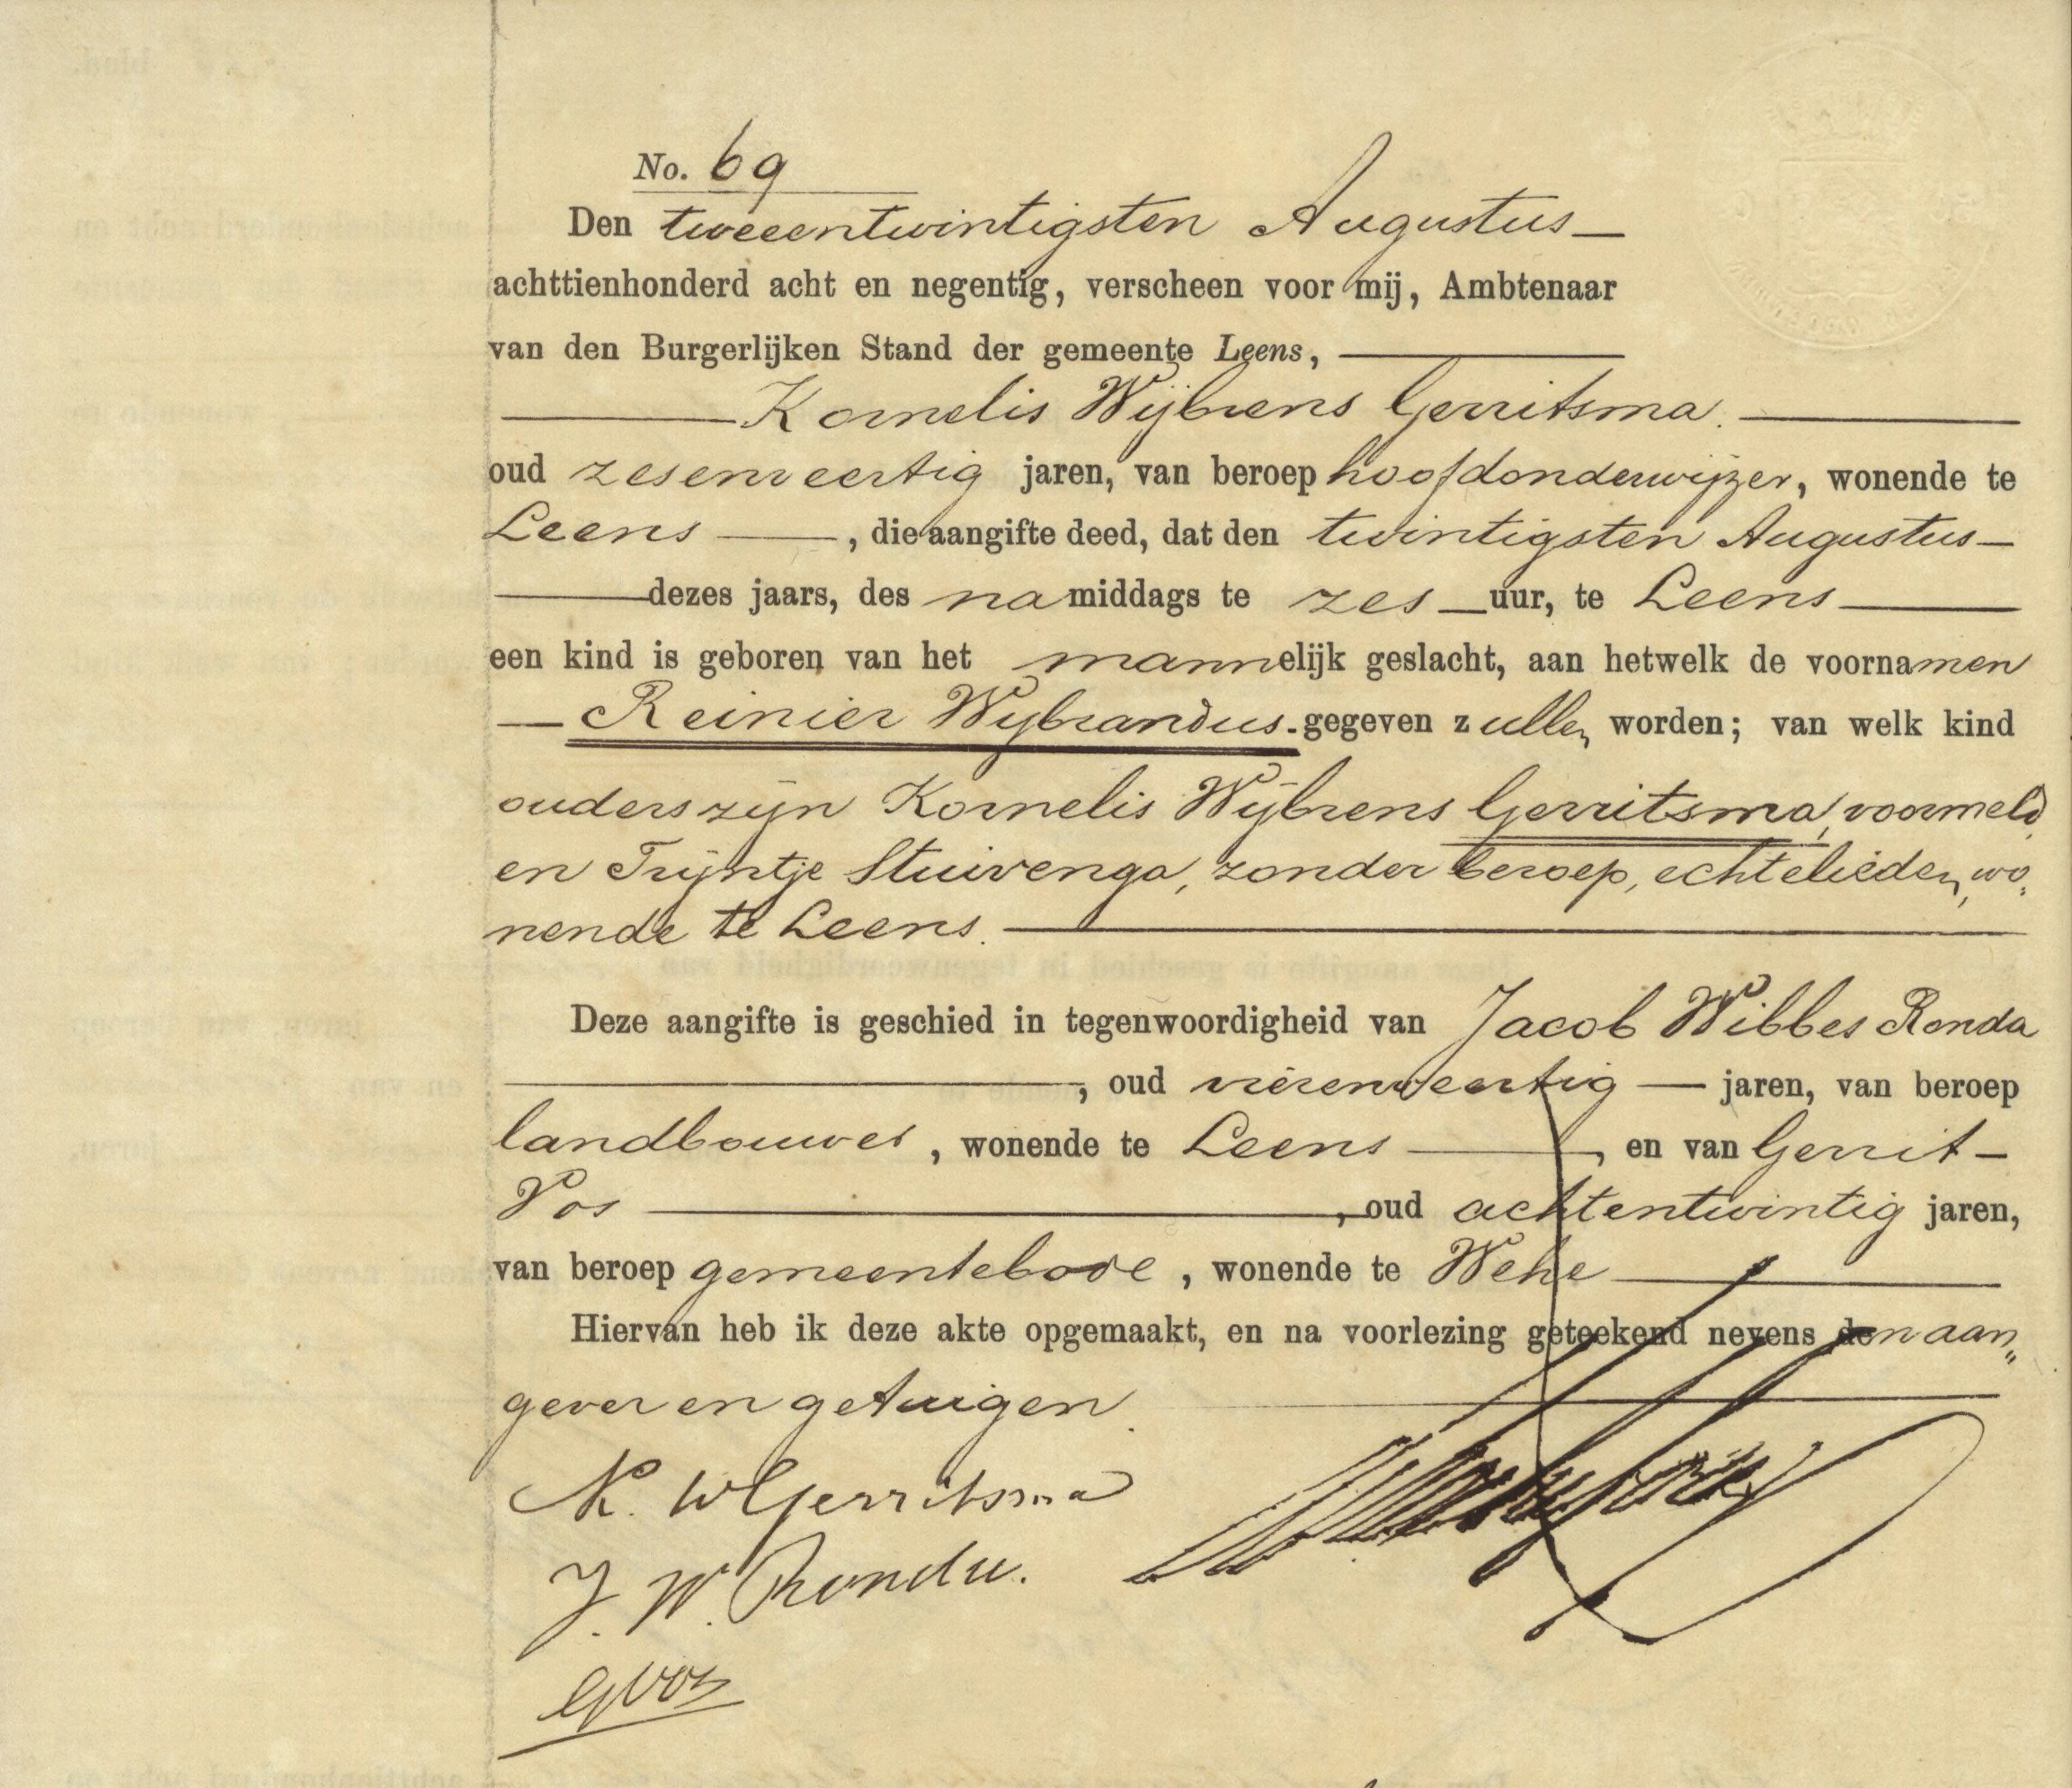 No. 69
Den tweeentwintigsten Augustus
achttienhonderd acht en negentig, verscheen voor mij, Ambtenaar
van den Burgerlijken Stand der gemeente Leens,
Kornelis Wijbrens Gerritsma.
oud zesenveertig jaren, van beroep hoofdonderwijzer, wonende te
Leens, die aangifte deed, dat den twintigsten Augustus
dezes jaars, des namiddags te zes uur, te Leens
een kind is geboren van het mannelijk geslacht, aan hetwelk de voornamen
Reinier Wybrandus gegeven zullen worden; van welk kind
ouders zijn Kornelis Wijbrens Gerritsma, voormeld
en Trijntje Stuivenga, zonder beroep, echtelieden, wo„
nende te Leens.
Deze aangifte is geschied in tegenwoordigheid van Jacob Wibbes Ronda
, oud vierenveertig jaren, van beroep
landbouwer, wonende te Leens, en van Gerrit
Vos, oud achtentwintig jaren,
van beroep gemeentebode, wonende te Wehe
Hiervan heb ik deze akte opgemaakt, en na voorlezing geteekend nevens den aan„
gever en getuigen.
K. W Gerritsma
J. W. Ronda.
G Vos